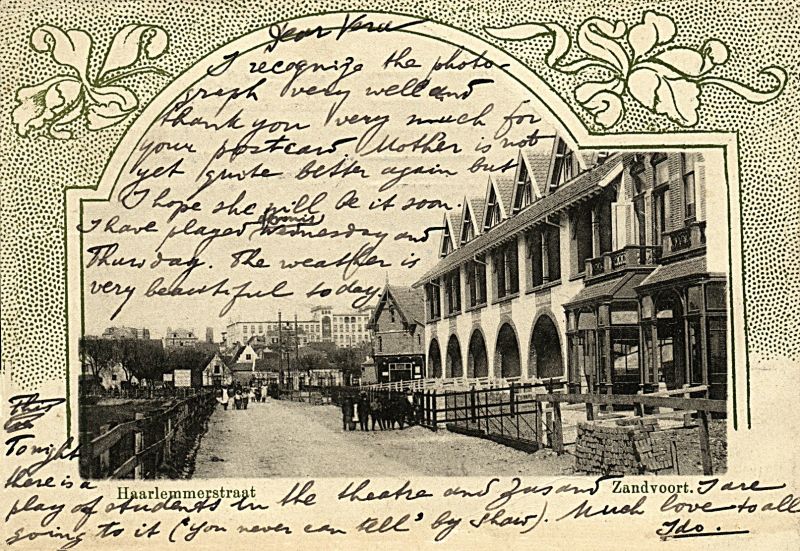 Dear Vera
I recognize the photo-
graph very well and
thank you very much for
your postcard Mother is not
yet quite better again but
I hope she will be it soon.
I have played tennis Wednesday and
Thursday. The weather is
very beautiful today
Tonight
there is a
Haarlemmerstraat Zandvoort.
play of students in the theatre and Zus and I are
going to it ('You never can tell' by Shaw). Much love to all
Ido.